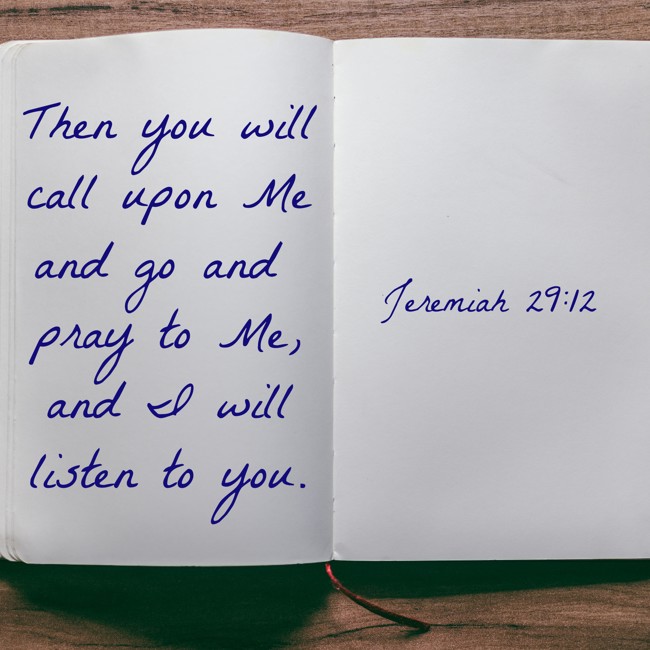 Then you will
call upon Me
and go and
pray to Me,
and I will
listen to you.
Jeremiah 29:12